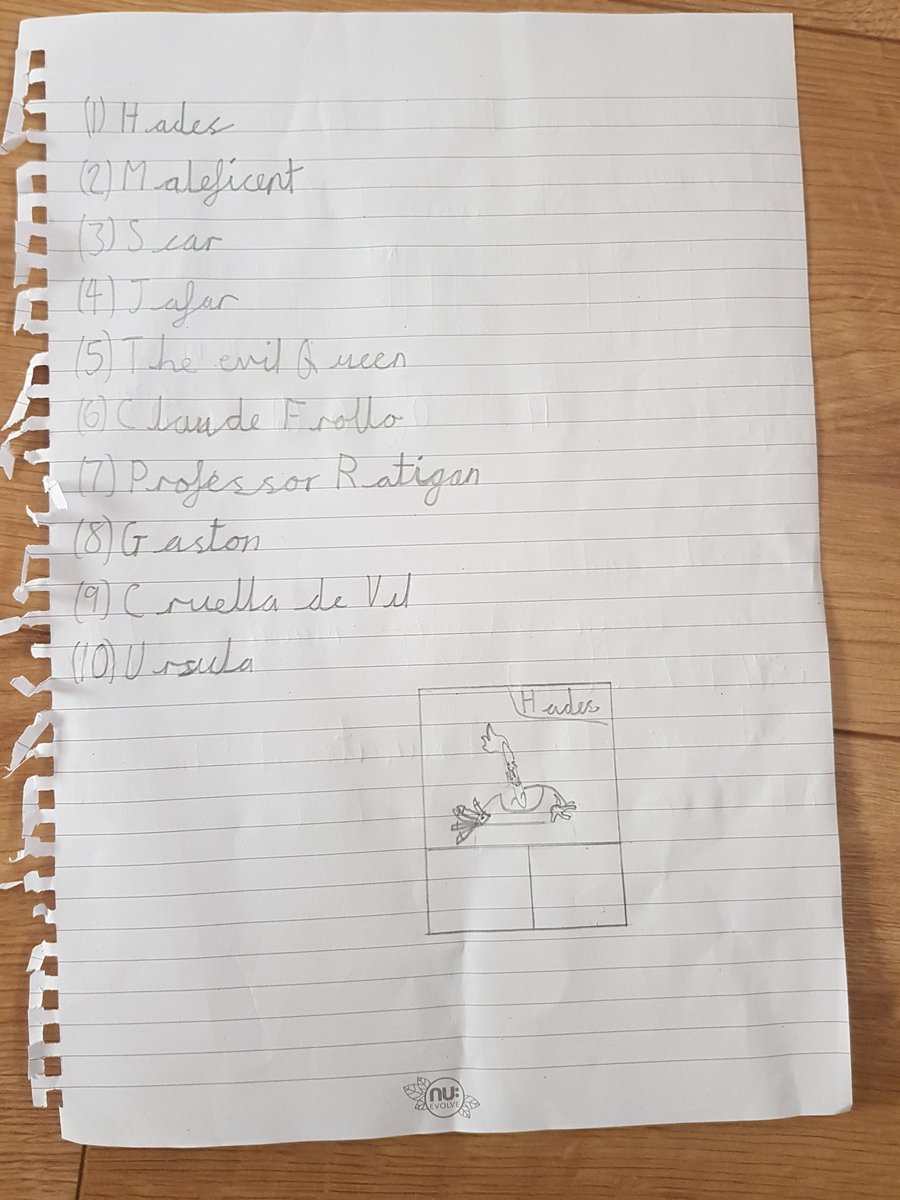 (1) Hades
(2) Maleficent
(3) Scar
(4) Jafar
(5) The evil Queen
(6) Claude Frollo
(7) Professor Ratigan
(8) Gaston
(9) Cruella de Vil
(10) Ursula
Hades
nu:
EVOLVE